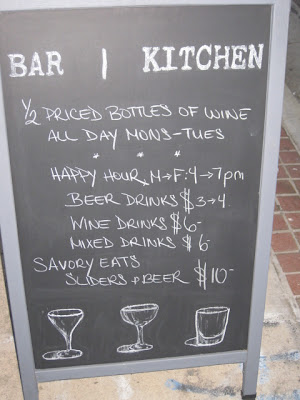 BAR | KITCHEN
1/2 PRICED BOTTLES OF WINE
ALL DAY MONS-TUES
* * *
HAPPY HOUR, M→F: 4→7pm
BEER DRINKS $3→4
WINE DRINKS $6-
MIXED DRINKS $6-
SAVORY EATS
SLIDERS + BEER $10-